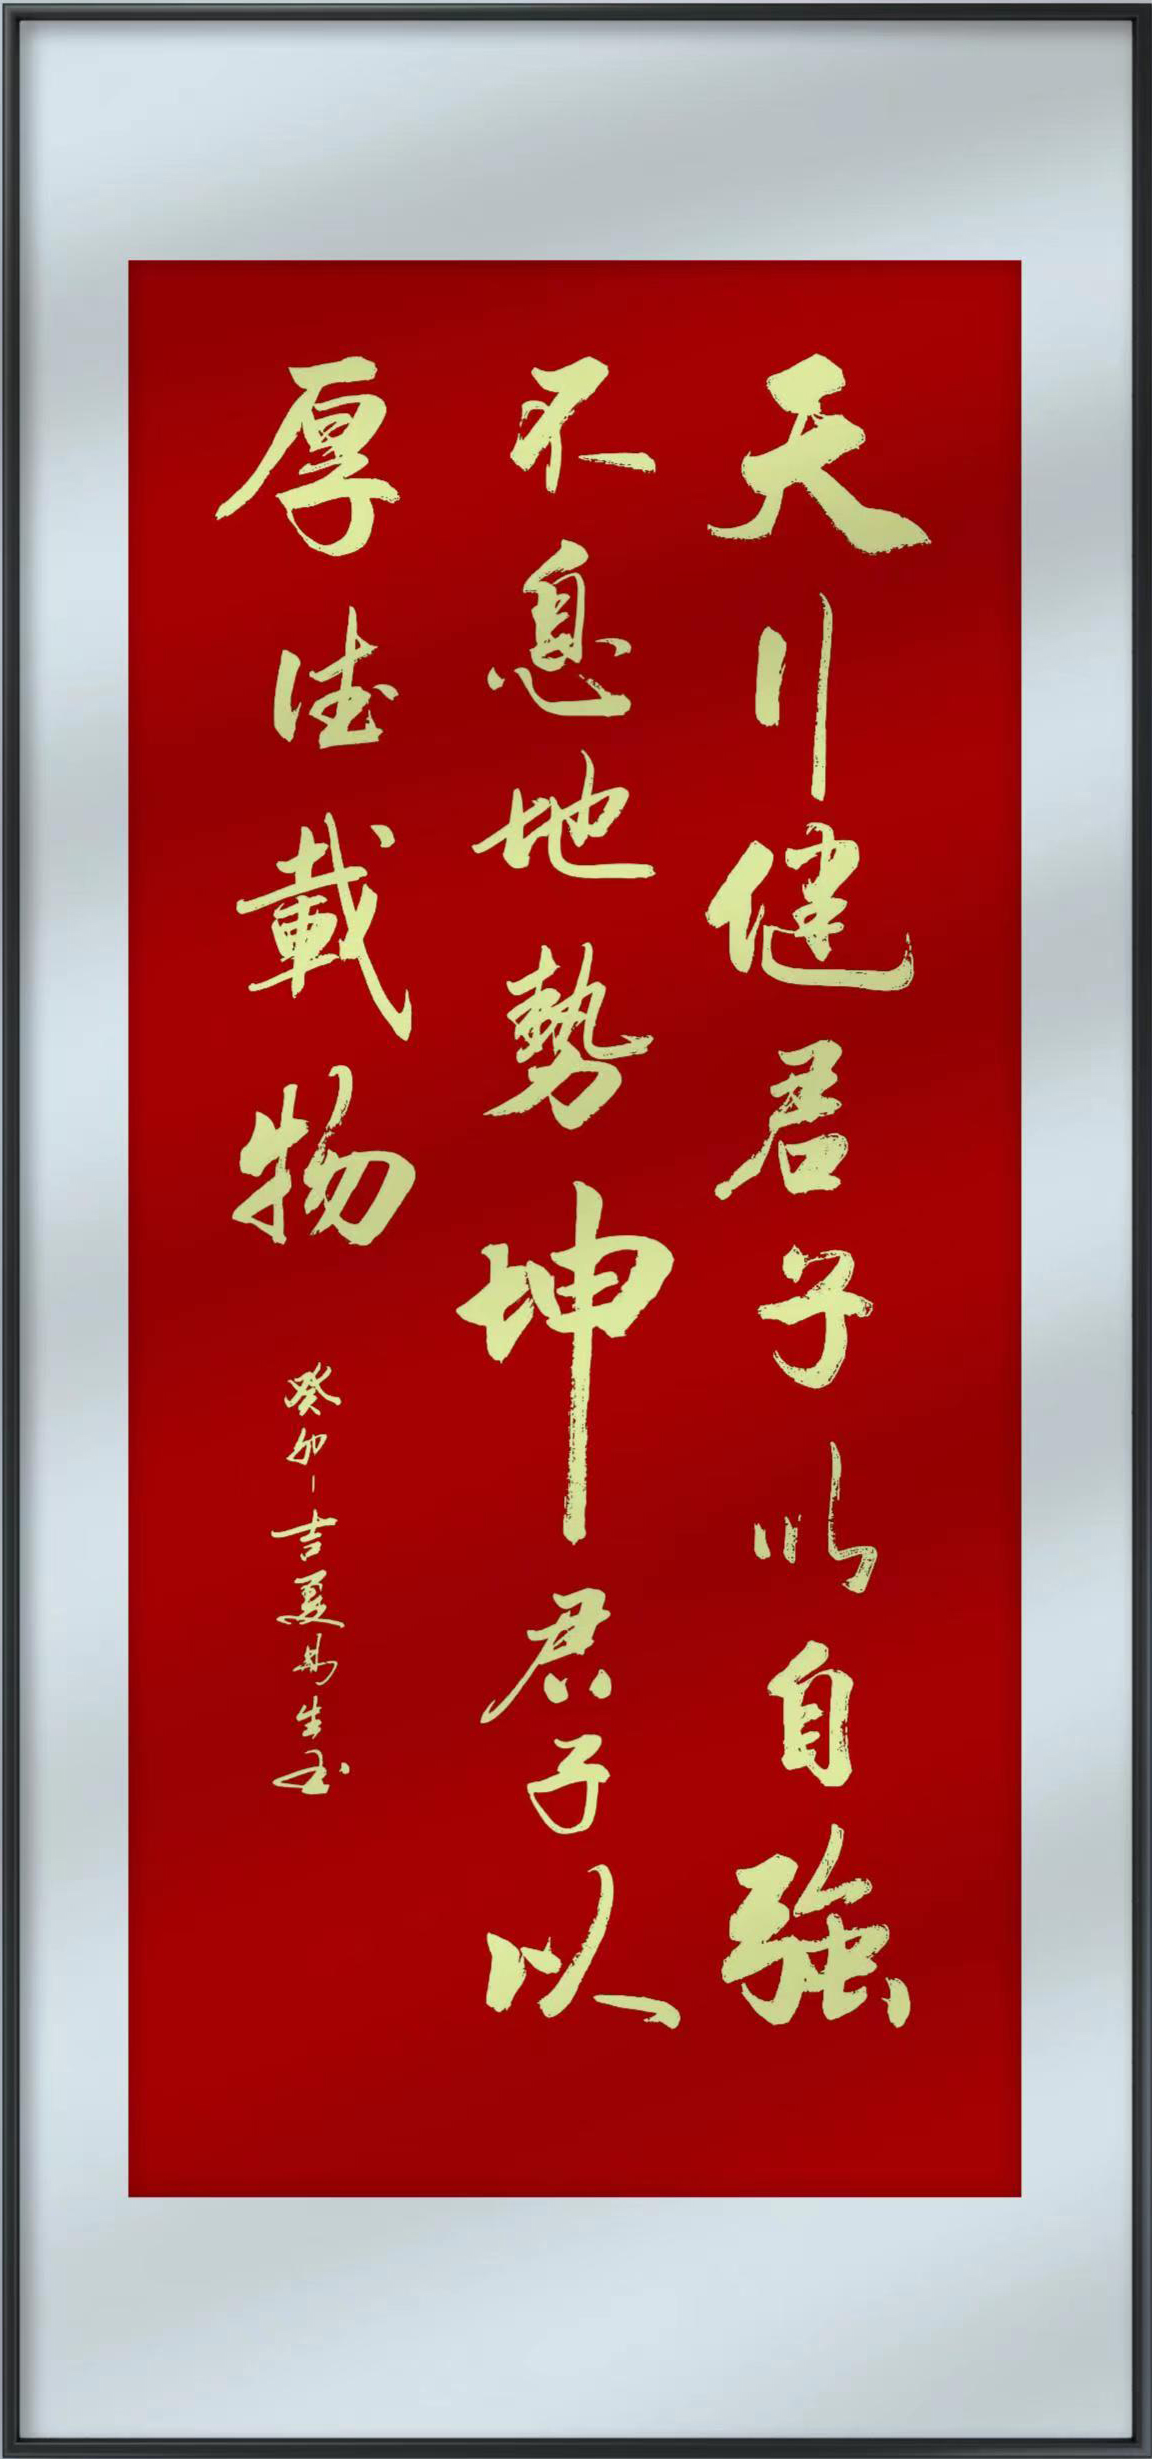 天行健君子以自強
不息地勢坤君子以
厚德載物
癸卯吉夏
生书